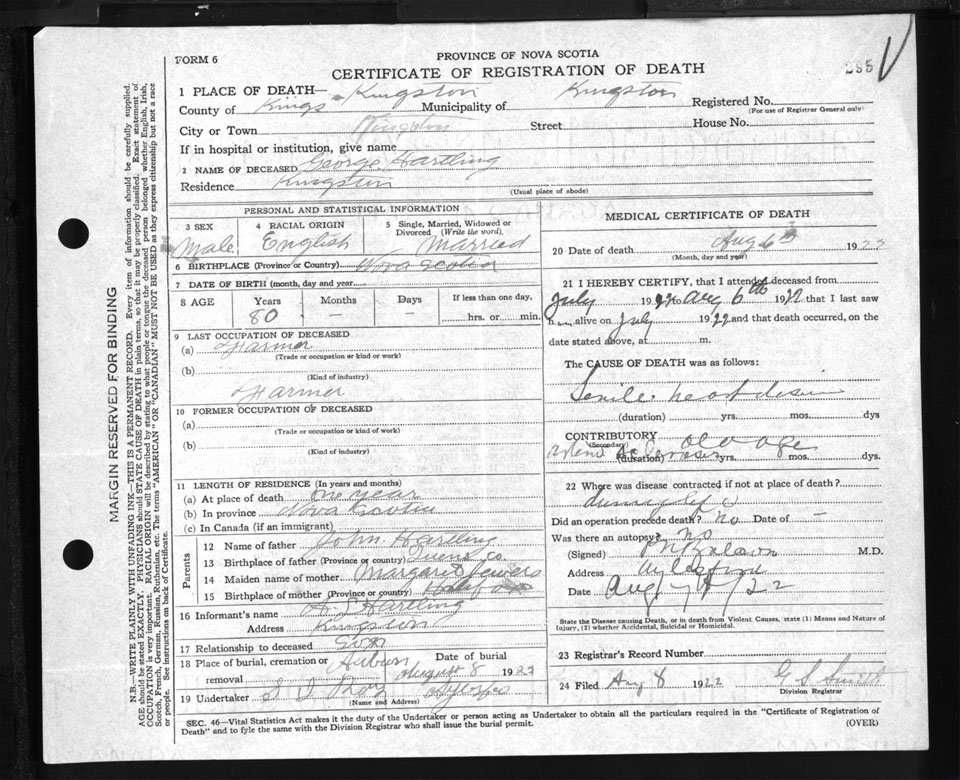 FORM 6
PROVINCE OF NOVA SCOTIA
CERTIFICATE OF REGISTRATION OF DEATH
295
1 PLACE OF DEATH— Kingston Kingston
County of Kings Municipality of Registered No.
(For use of Registrar General only)
City or Town Kingston Street House No.
If in hospital or institution, give name
2 NAME OF DECEASED George Hartling
Residence Kingston
(Usual place of abode)
PERSONAL AND STATISTICAL INFORMATION
3 SEX Male
4 RACIAL ORIGIN English
5 Single, Married, Widowed or Divorced (Write the word). Married
6 BIRTHPLACE (Province or Country) Nova Scotia
7 DATE OF BIRTH (month, day and year)
8 AGE Years Months Days If less than one day,
80 — — hrs. or min.
9 LAST OCCUPATION OF DECEASED
(a) Farmer
(Trade or occupation or kind or work)
(b)
(Kind of industry)
Farmer
10 FORMER OCCUPATION OF DECEASED
(a)
(Trade or occupation or kind of work)
(b)
(Kind of industry)
11 LENGTH OF RESIDENCE (In years and months)
(a) At place of death one year
(b) In province Nova Scotia
(c) In Canada (if an immigrant)
Parents
12 Name of father John Hartling
13 Birthplace of father (Province or country) Queens Co.
14 Maiden name of mother Margaret
15 Birthplace of mother (Province or country) Halifax
16 Informant's name Hartling
Address Kingston
17 Relationship to deceased Son
18 Place of burial, cremation or removal Auburn
Date of burial August 8 1922
19 Undertaker
(Name end Address)
MEDICAL CERTIFICATE OF DEATH
20 Date of death Aug 6th 1922
(Month, day and year)
21 I HEREBY CERTIFY, that I attended deceased from
July 1922 to Aug 6th 1922 that I last saw
h alive on July 1922 and that death occurred, on the
date stated above, at m.
The CAUSE OF DEATH was as follows:
Senile heart disease
(duration) yrs. mos. dys
CONTRIBUTORY old age
(Secondary)
(duration) yrs. mos. dys.
22 Where was disease contracted if not at place of death?
Did an operation precede death? no Date of —
Was there an autopsy? no
(Signed) M.D.
Address Aylesford
Date Aug 22
State the Disease causing Death, or in death from Violent Causes, state (1) Means and Nature of
Injury, (2) whether Accidental, Suicidal or Homicidal.
23 Registrar's Record Number
24 Filed Aug 8 1922 G S Smith
Division Registrar
SEC. 46—Vital Statistics Act makes it the duty of the Undertaker or person acting as Undertaker to obtain all the particulars required in the "Certificate of Registration of
Death" and to fyle the same with the Division Registrar who shall issue the burial permit.
(OVER)
MARGIN RESERVED FOR BINDING
N.B.—WRITE PLAINLY WITH UNFADING INK—THIS IS A PERMANENT RECORD. Every item of information should be carefully supplied.
AGE should be stated EXACTLY. PHYSICIANS should STATE CAUSE OF DEATH in plain terms, so that it may be properly classified. Exact statement of
OCCUPATION is very important. RACIAL ORIGIN will be described by stating to what people or tongue the deceased person belonged whether English, Irish,
Scotch, French, German, Russian, Ruthenian, etc. The terms "AMERICAN" or "CANADIAN" MUST NOT BE USED as they express citizenship but not a race
or people. See instructions on back of Certificate.